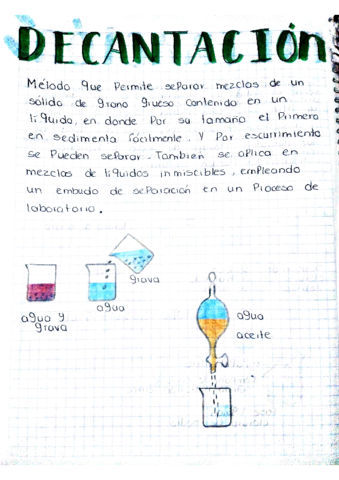 DECANTACIÓn
Método que Permite separar mezclas de un
sólido de grano grueso contenido en un
líquido, en donde Por su tamaño el Primero
en sedimenta fácilmente. Y Por escurrimiento
se Pueden separar. También se aplica en
mezclas de líquidos inmiscibles, empleando
un embudo de separación en un Proceso de
laboratorio.
grava
agua
agua y
grava
agua
aceite